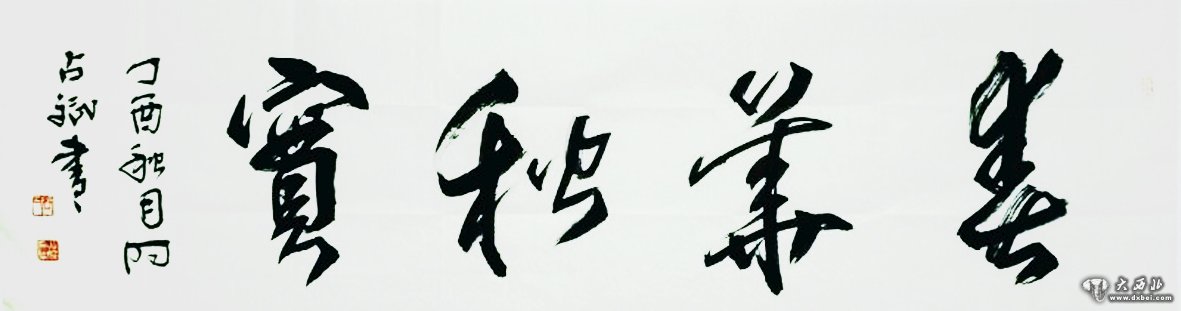 春華秋實
丁酉秋月
占斌書
大西北
www.dxbei.com